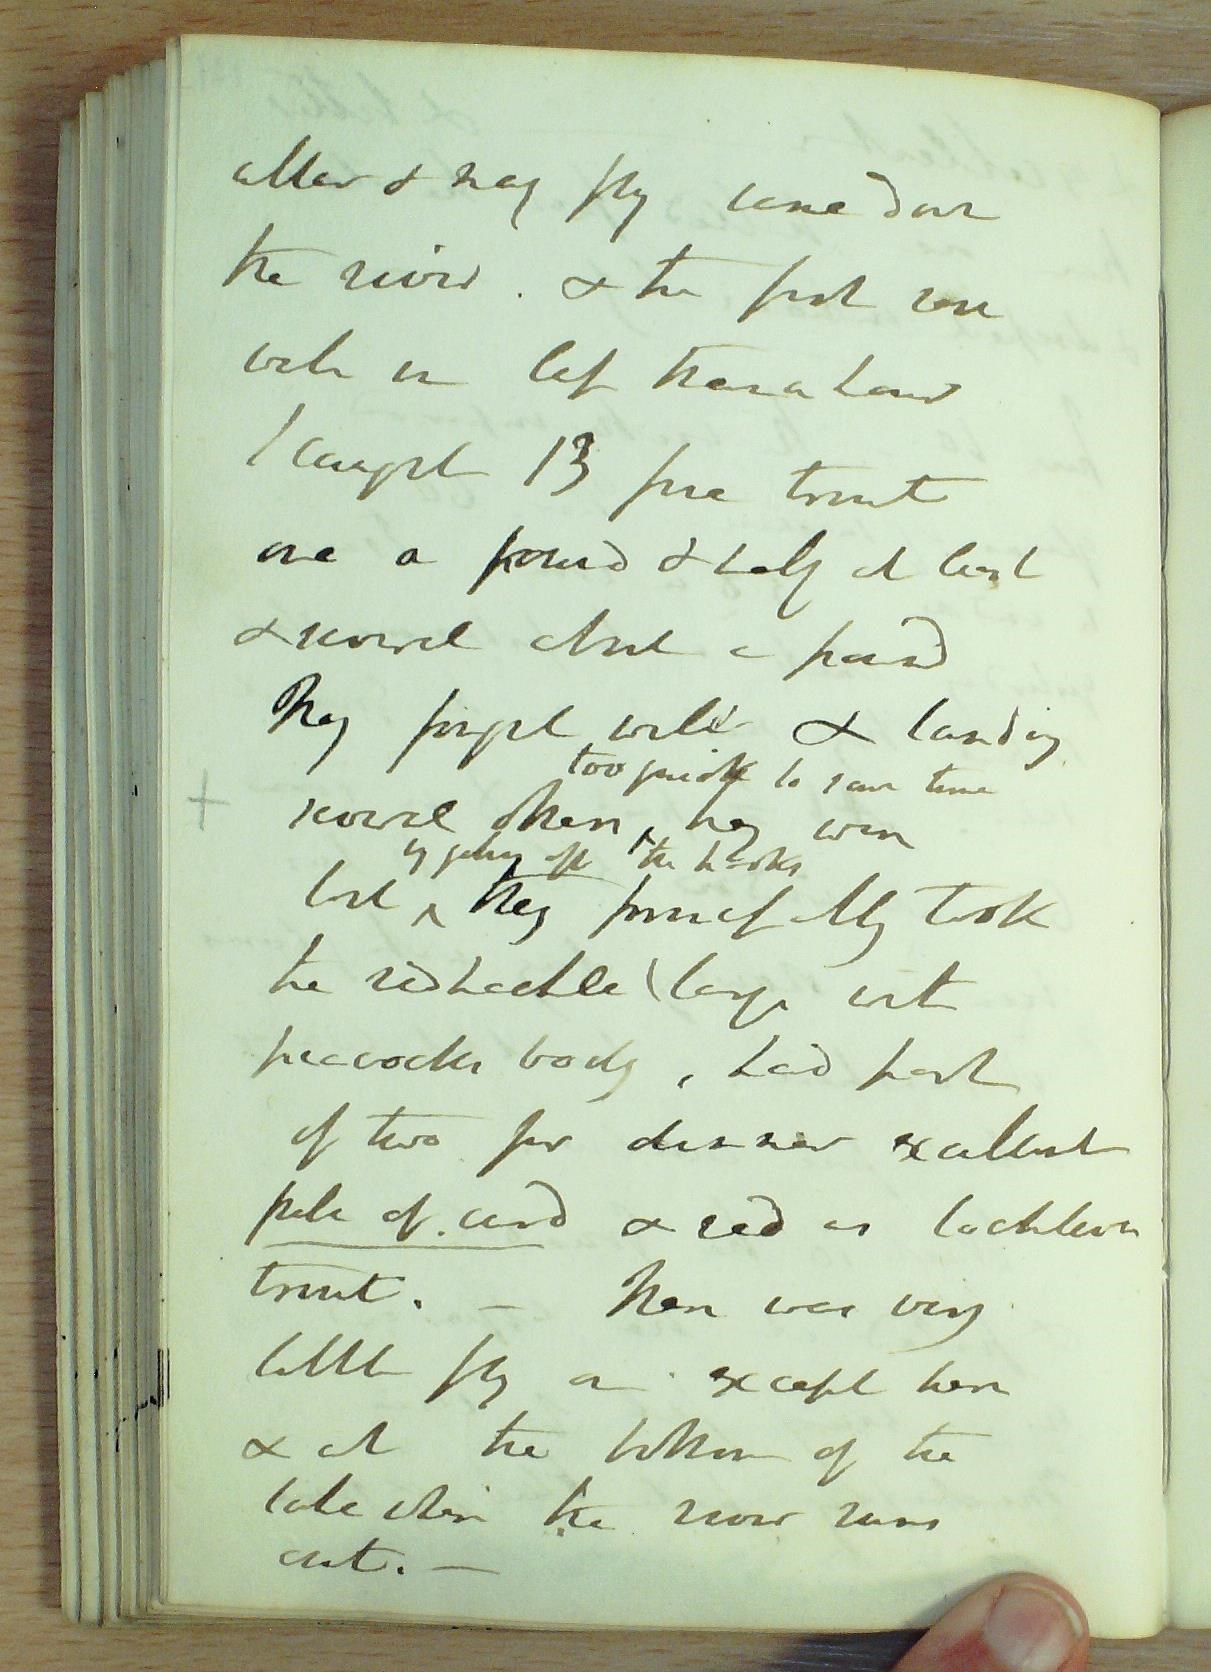 alder & may fly came down
the river. & the fish rose
well in less than an hour
I caught 13 fine trout
one a pound & half at least
& several about a pound
They fought well & landing
too quick to save time
several when they were
by pulling off the hooks
lost they principally took
the red hackle (large with
peacocks body, had part
of two for dinner excellent
pale of curd & red as lochleven
trout. — There was very
little fly on except here
& at the bottom of the
lake where the river runs
out. —